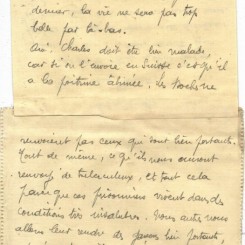 dernier, la vie ne sera pas trop
belle par là-bas.
Charles doit être bien malade,
car si on l'envoie en Suisse c'est qu'il
a la poitrine abimée. Les Boches ne
renvoient pas ceux qui sont bien portants.
Tout de même, ce qu'ils nous auront
renvoyé de tuberculeux, et tout cela
parce que ces prisonniers vivent dans des
conditions très insalubres. Nous autres nous
allons leur rendre des gens bien portants,